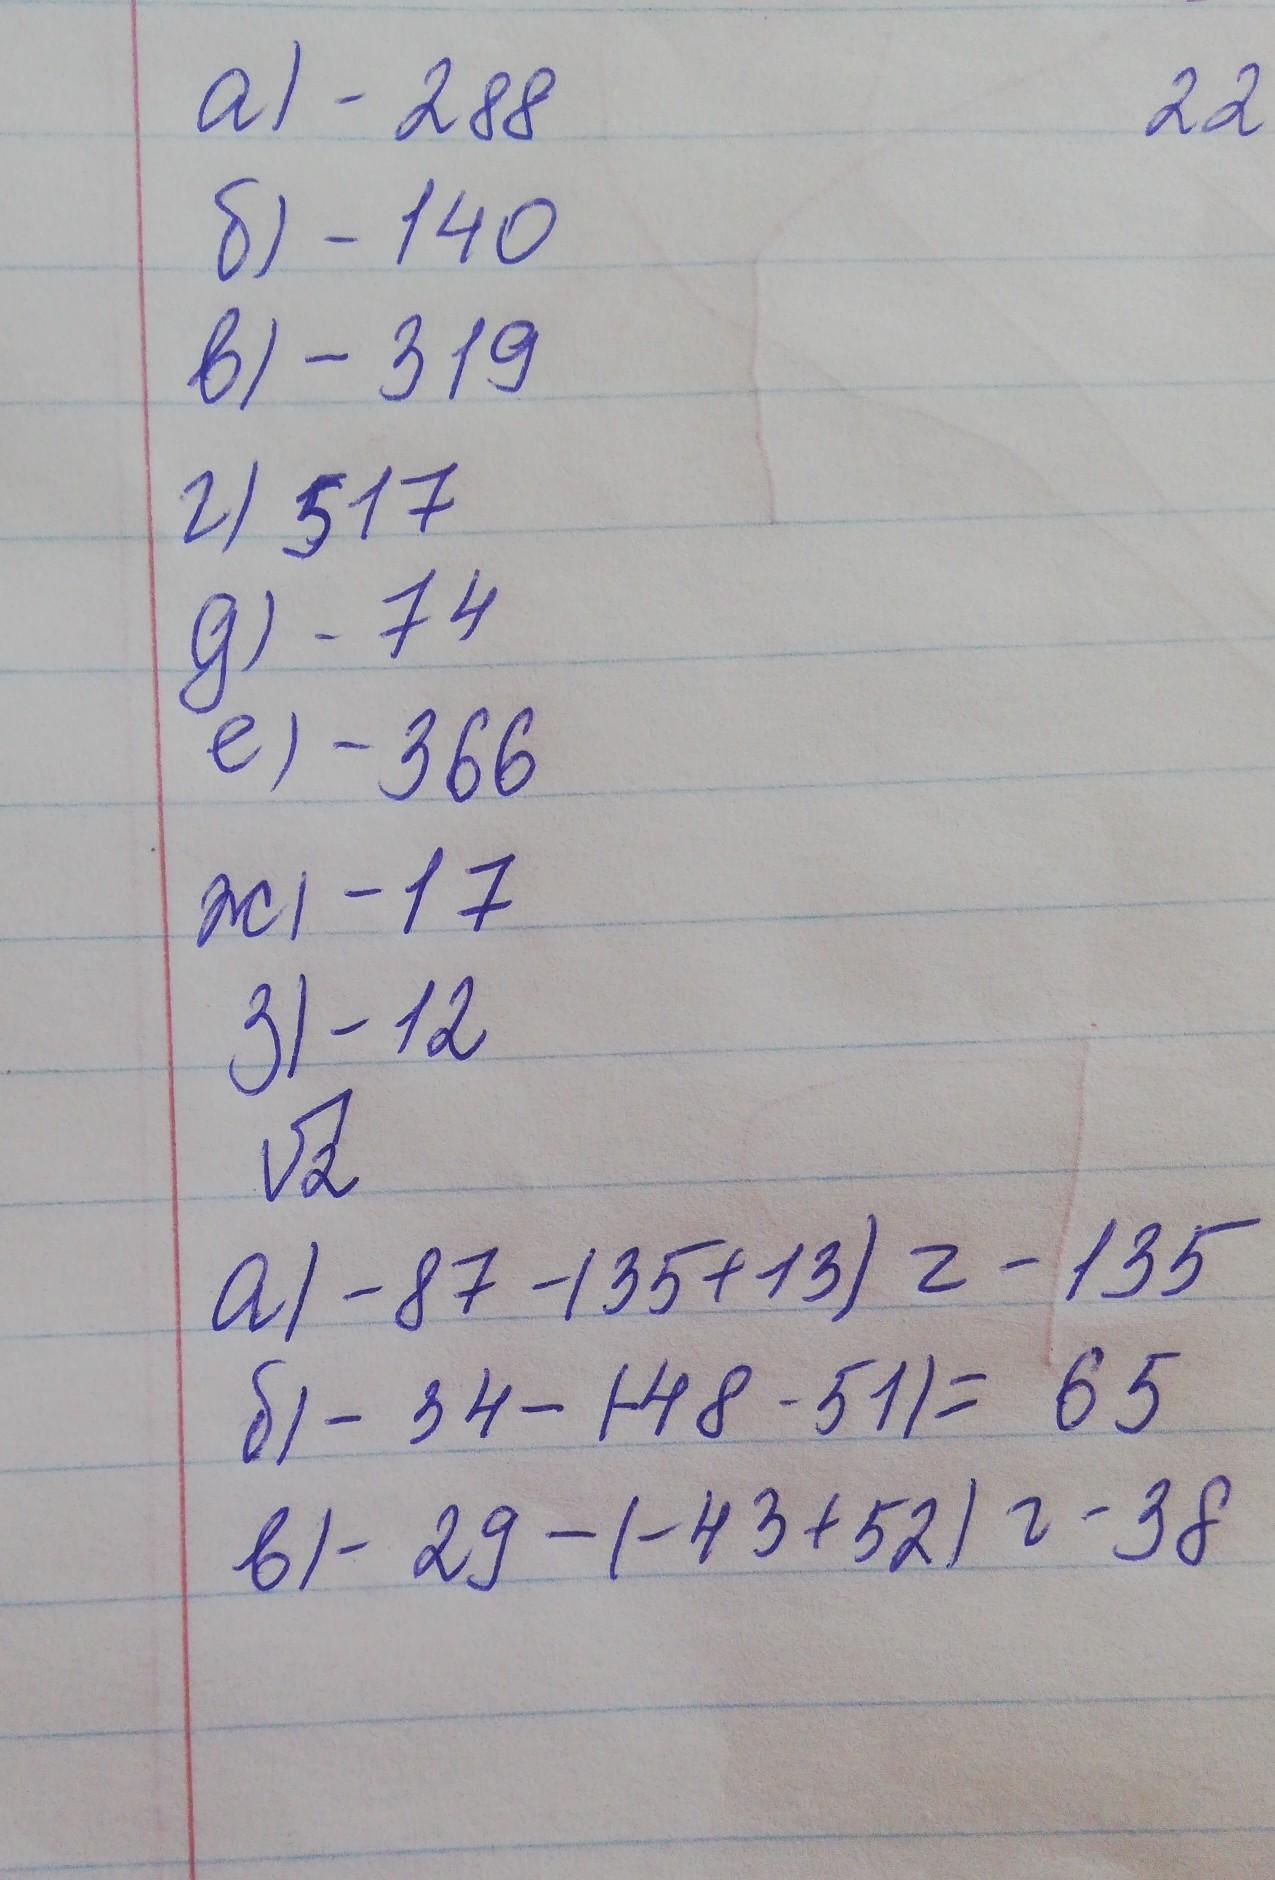 а) - 288 22
б) - 140
в) - 319
г) 517
д) - 74
е) - 366
ж) - 17
з) - 12
√2
а) - 87 - (35 + 13) = - 135
б) - 34 - (-48 - 51) = 65
в) - 29 - (- 43 + 52) = - 38